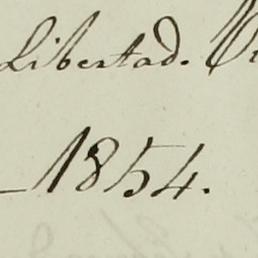 Libertad.
1854.